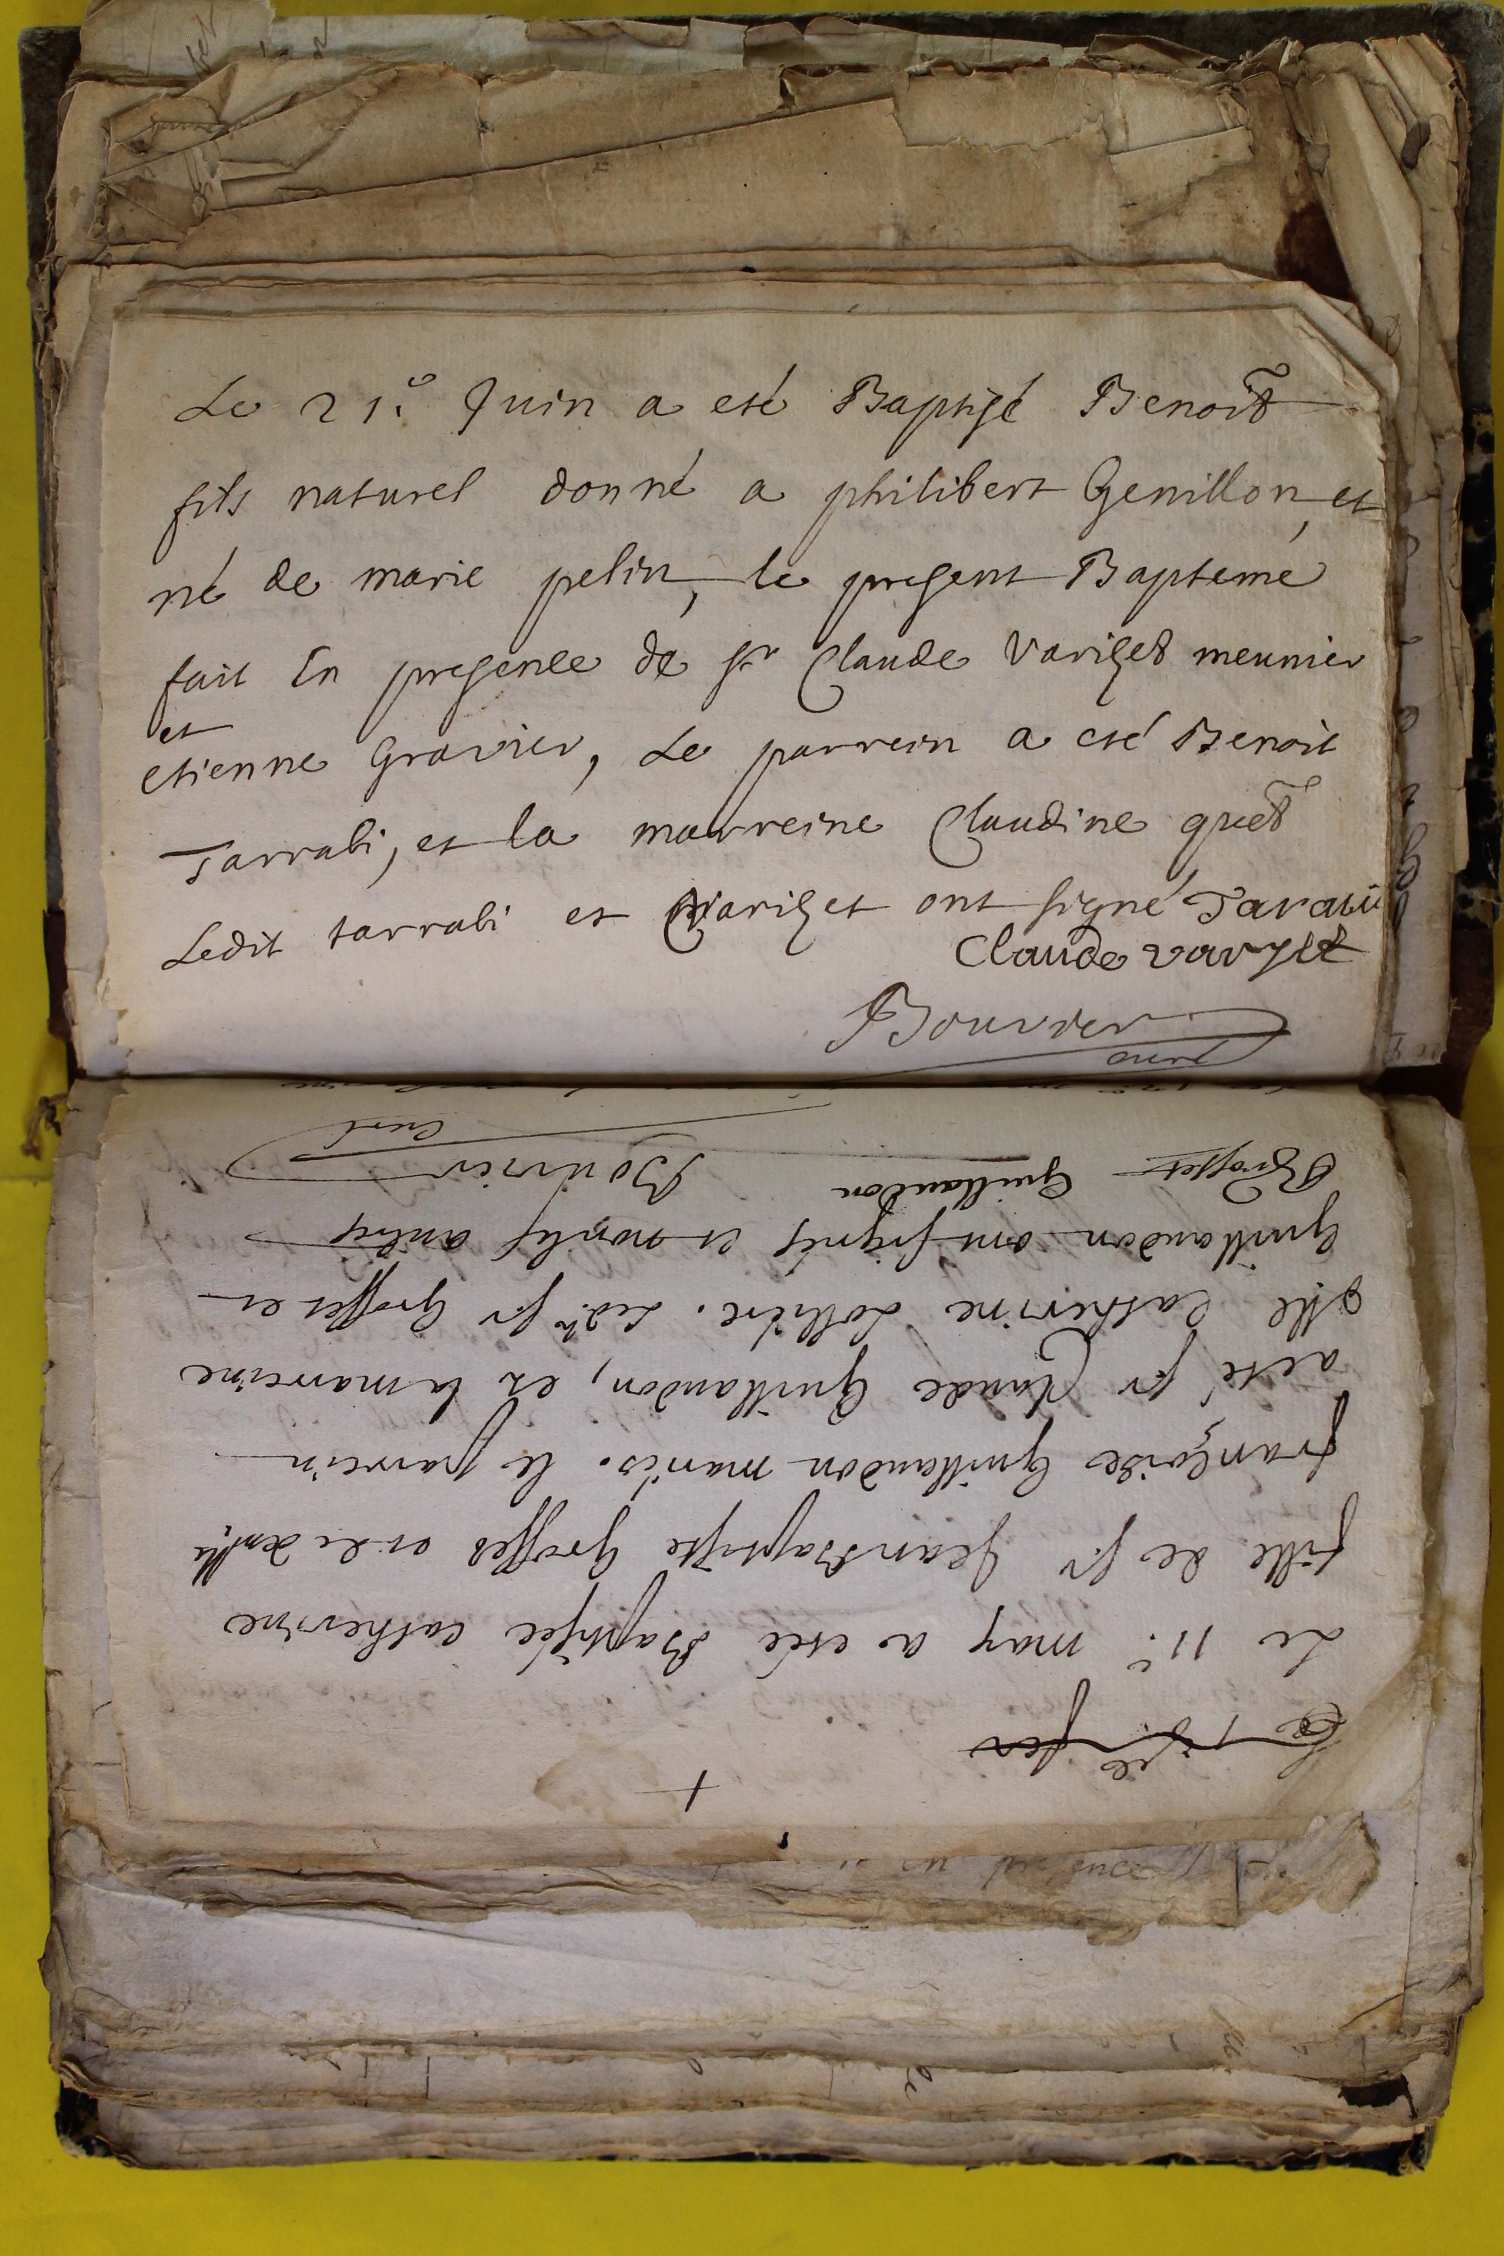 Le 21.e Juin a eté Baptisé Benoit
fils naturel donné a philibert Genillon, et
né de marie pelin, le present Bapteme
fait En presence de sr Claude Varizet meunier
et
etienne Gravier, Le parrein a eté Benoit
Tarrabi, et la marreine Claudine guet
Ledit tarrabi et Varizet ont signé, Tarabi
Claude varizet
Bouvier
curé
Le 11.e may a eté Baptisée catherine
fille de sr JeanBaptiste Grosset et de demlle
françoise Guillaudon mariés. le parrein
a eté sr Claude Guillaudon, et la marreine
Catherine Ledt sr Grosset et
Guillaudon ont signés et non les autres
Grosset Guillaudon Bouvier
curé